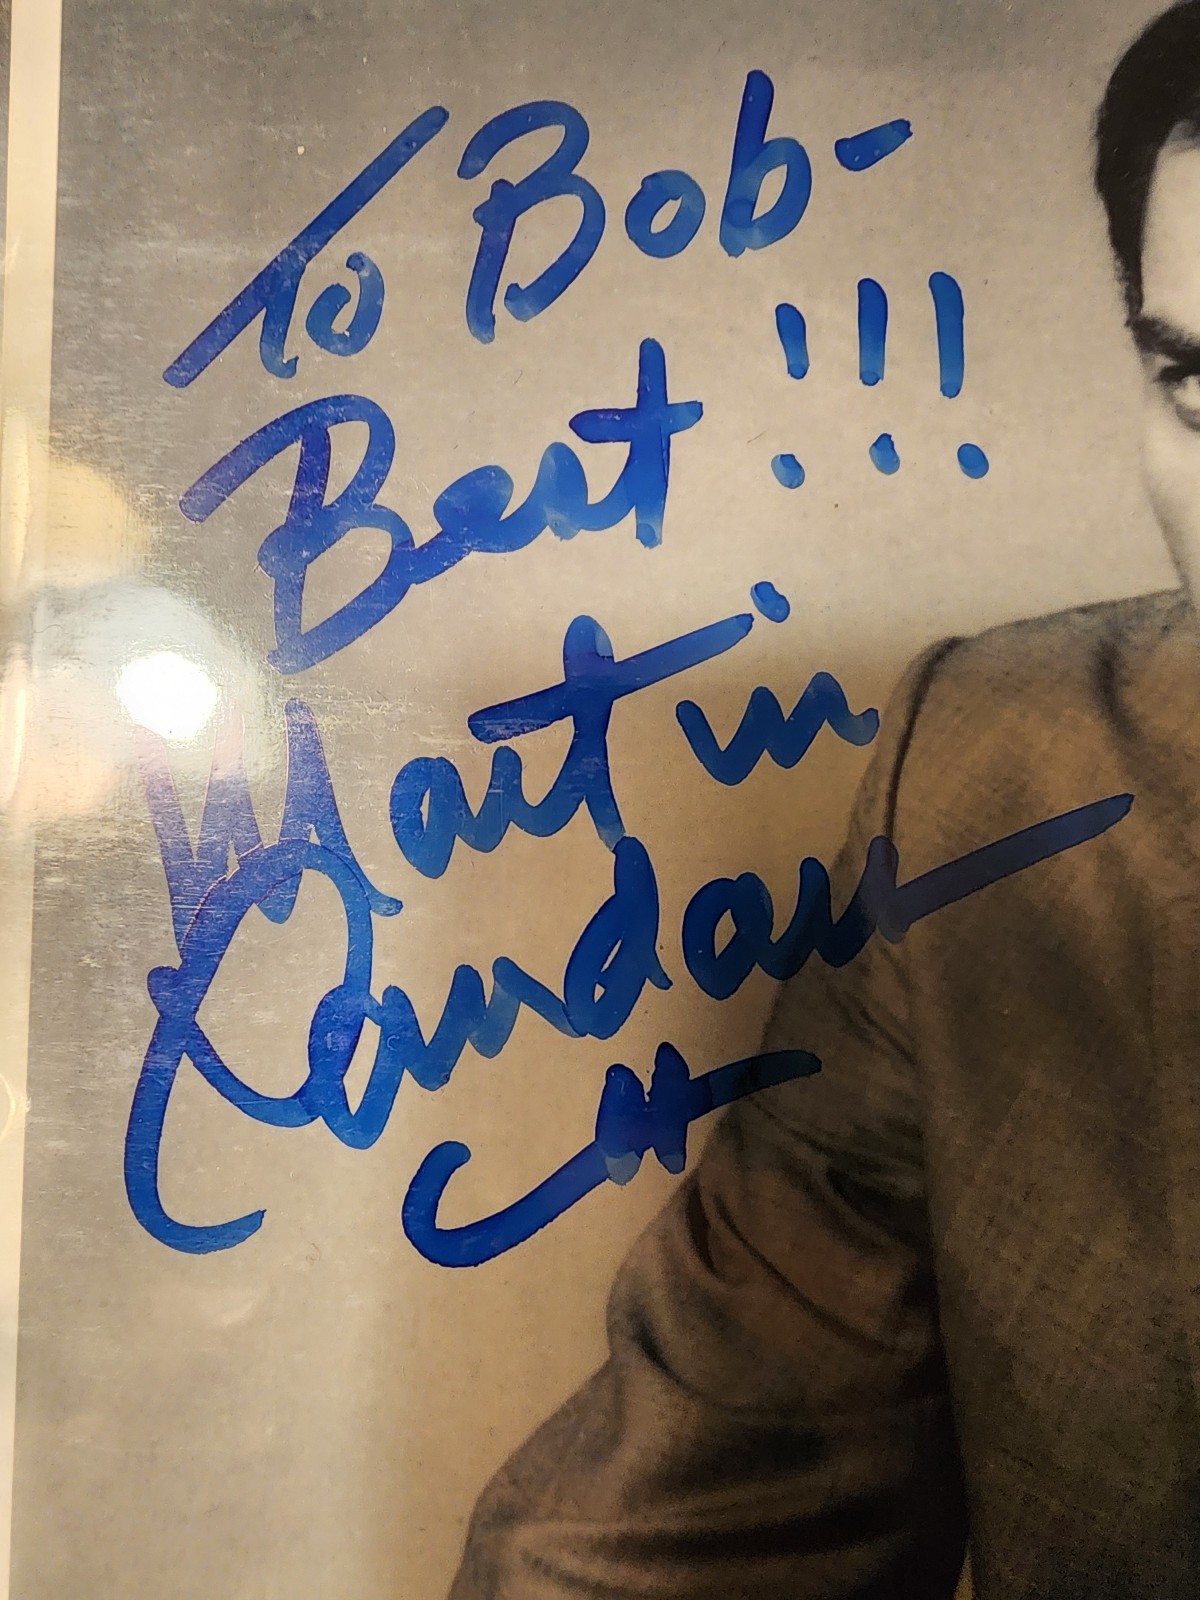 To Bob-
Best!!!
Martin
Landau